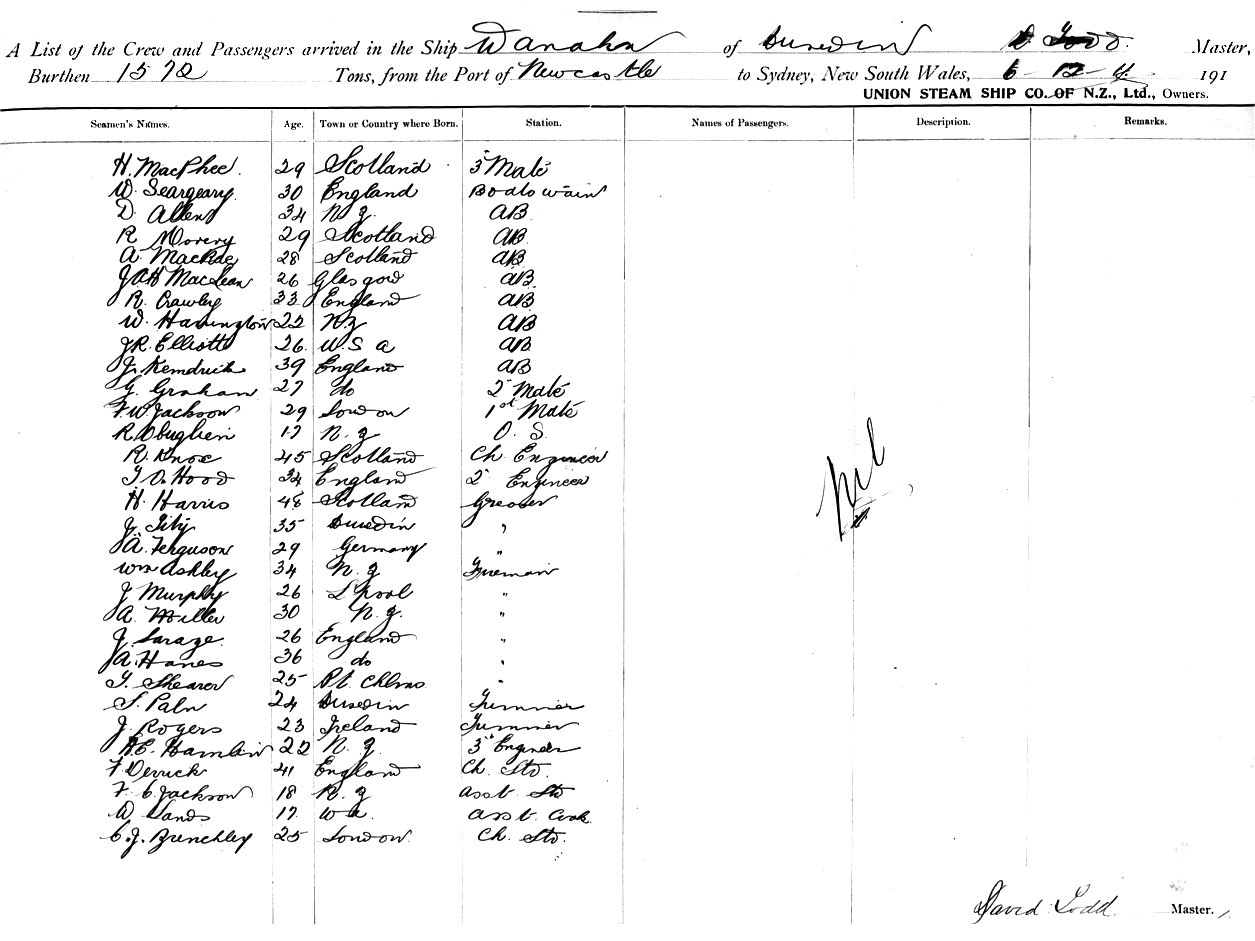 A List of the Crew and Passengers arrived in the Ship Wanaka of Dunedin D Todd Master,
Burthen 1572 Tons, from the Port of Newcastle to Sydney, New South Wales, 6 - 12 - 11 191
UNION STEAM SHIP CO. OF N.Z., Ltd., Owners.
Seamen's Names. Age. Town or Country where Born. Station. Names of Passengers. Description. Remarks.
H. MacPhee 29 Scotland 3" Mate
W. Seargeary 30 England
D Allen 34 N Z. AB
R 29 Scotland AB
A. MacRae 28 Scotland AB
JAH MacLean 26 Glasgow AB
R. Crawley 33 England AB
W. Harrington 22 NZ AB
J.R. Elliott 26 U.S a AB
J. Kemdrick 39 England AB
G. Graham 27 do 2" Mate
F.W. Jackson 29 London 1st Mate
R 17 N. Z O. S.
R. Knox 45 Scotland Ch Engineer
T. O. Hood 34 England 2" Engineer
H. Harris 48 Scotland Greaser
J. 35 Dunedin "
A. Ferguson 29 Germany "
Wm Ashley 34 N. Z Fireman
J Murphy 26 L'pool "
A. Miller 30 N. Z. "
J. 26 England "
A. Hanes 36 do "
T. Shearer 25 Pt. Chlms "
S. Paln 24 Dunedin Trimmer
J. Rogers 23 Ireland Trimmer
H.E. Hamlin 22 N. Z. 3" Engineer
F Derrick 41 England Ch. Std.
F. C. Jackson 18 N. Z asst Std
A. Sands 17 Wa. asst. Cook
C. J. Brenchley 25 London Ch. Std.
Nil
David Todd Master.